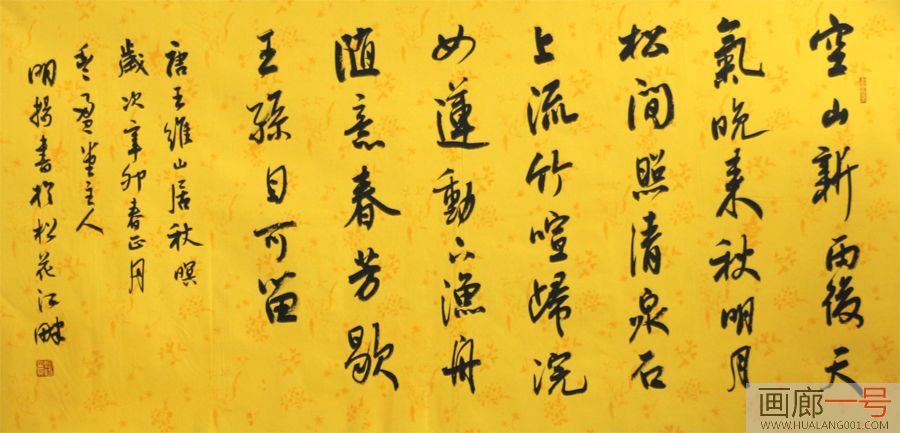 空山新雨後天
氣晚来秋明月
松间照清泉石
上流竹喧歸浣
女蓮動下漁舟
随意春芳歇
王孫自可留
唐王維山居秋暝
歲次辛卯春正月
盈堂主人
明揚書於松花江畔
画廊一号
WWW.HUALANG001.COM